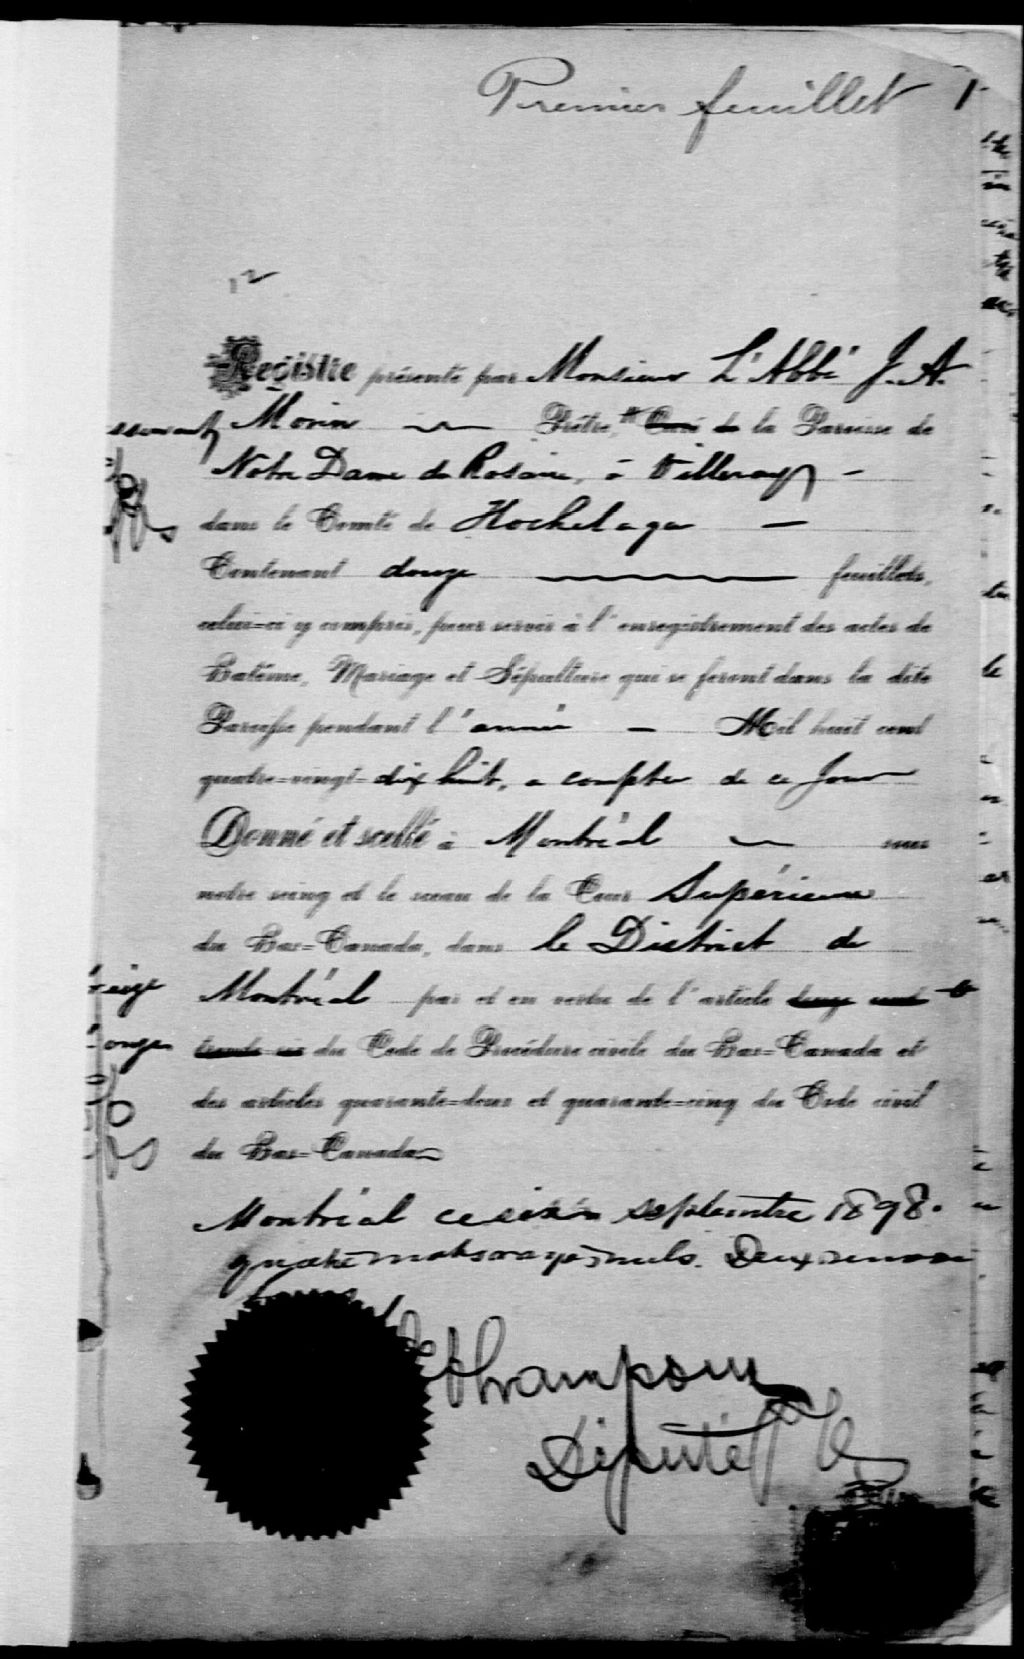 Premier feuillet 1
12
Registre présenté par Monsieur L'Abbé J. A.
Morin Prêtre, Curé de la Paroisse de
Notre Dame du Rosaire, à Villeray
dans le Comté de Hochelaga
Contenant douze feuillets,
celui-ci y compris, pour servir à l'enregistrement des actes de
Batême, Mariage et Sépulture qui se feront dans la dite
Paroisse pendant l'année Mil huit cent
quatre-vingt-dix huit, a compter de ce Jour
Donné et scellé à Montréal sous
notre seing et le sceau de la Cour Supérieure
du Bas-Canada, dans le District de
Montréal par et en vertu de l'article douze cent
trente-six du Code de Procédure civile du Bas-Canada et
des articles quarante-deux et quarante-cinq du Code civil
du Bas-Canada
Montréal ce sixième septembre 1898.
quatre mots rayés nuls. Deux renvois
bons
Député P